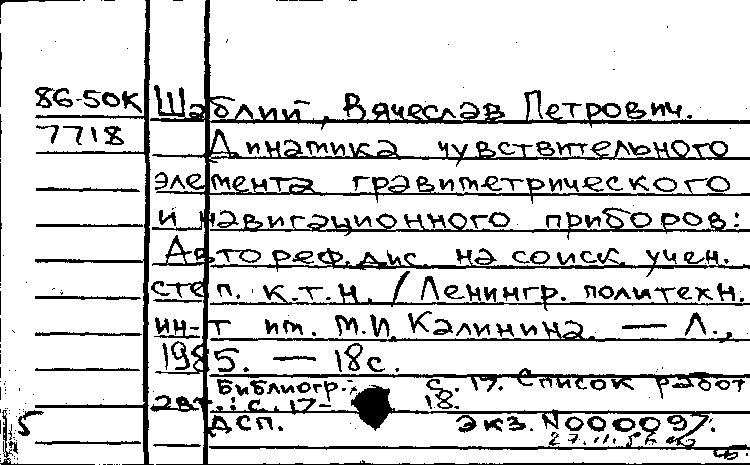 86-50К Шаблий, Вячеслав Петрович.
7718 Динамика чувствительного
элемента гравиметрического
и навигационного приборов:
Автореф. дис. на соиск. учен.
степ. к.т.н. / Ленингр. политехн.
ин-т им. М.И. Калинина. — Л.,
1985. — 18 с.
Библиогр.: с. 17. Список работ
авт.: с. 17- 18.
5 ДСП. экз. N000097.